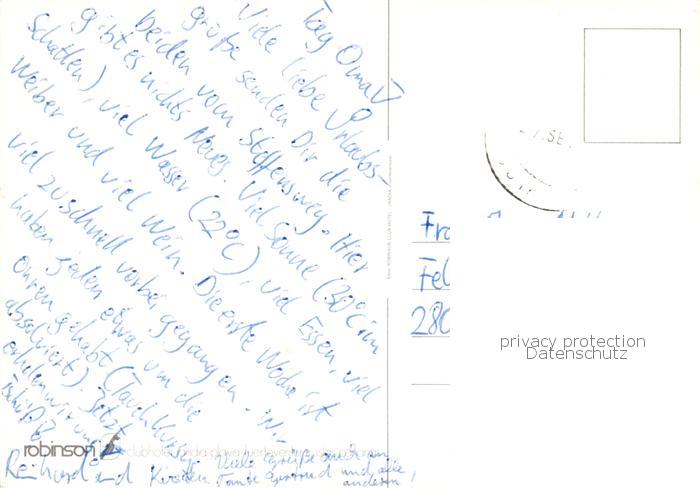 Tag Oma!
Viele liebe Urlaubs-
grüße senden Dir die
beiden vom Steffensweg. Hier
gibt es nichts Neues. Viel Sonne (30°C im
Schatten), viel Wasser (22°C), viel Essen, viel
Weiber und viel Wein. Die erste Woche ist
viel zu schnell vorbei gegangen. Wir
haben jeden etwas um die
Ohren gehabt (Tauchkurs
absolviert). Jetzt
erholen wir uns
Tschüß
Reinhard und Kirsten
Viele Grüße
Tante und alle
anderen!
robinson
clubhotel jandia playa fuerteventura
Fra
Fel
280
privacy protection
Datenschutz